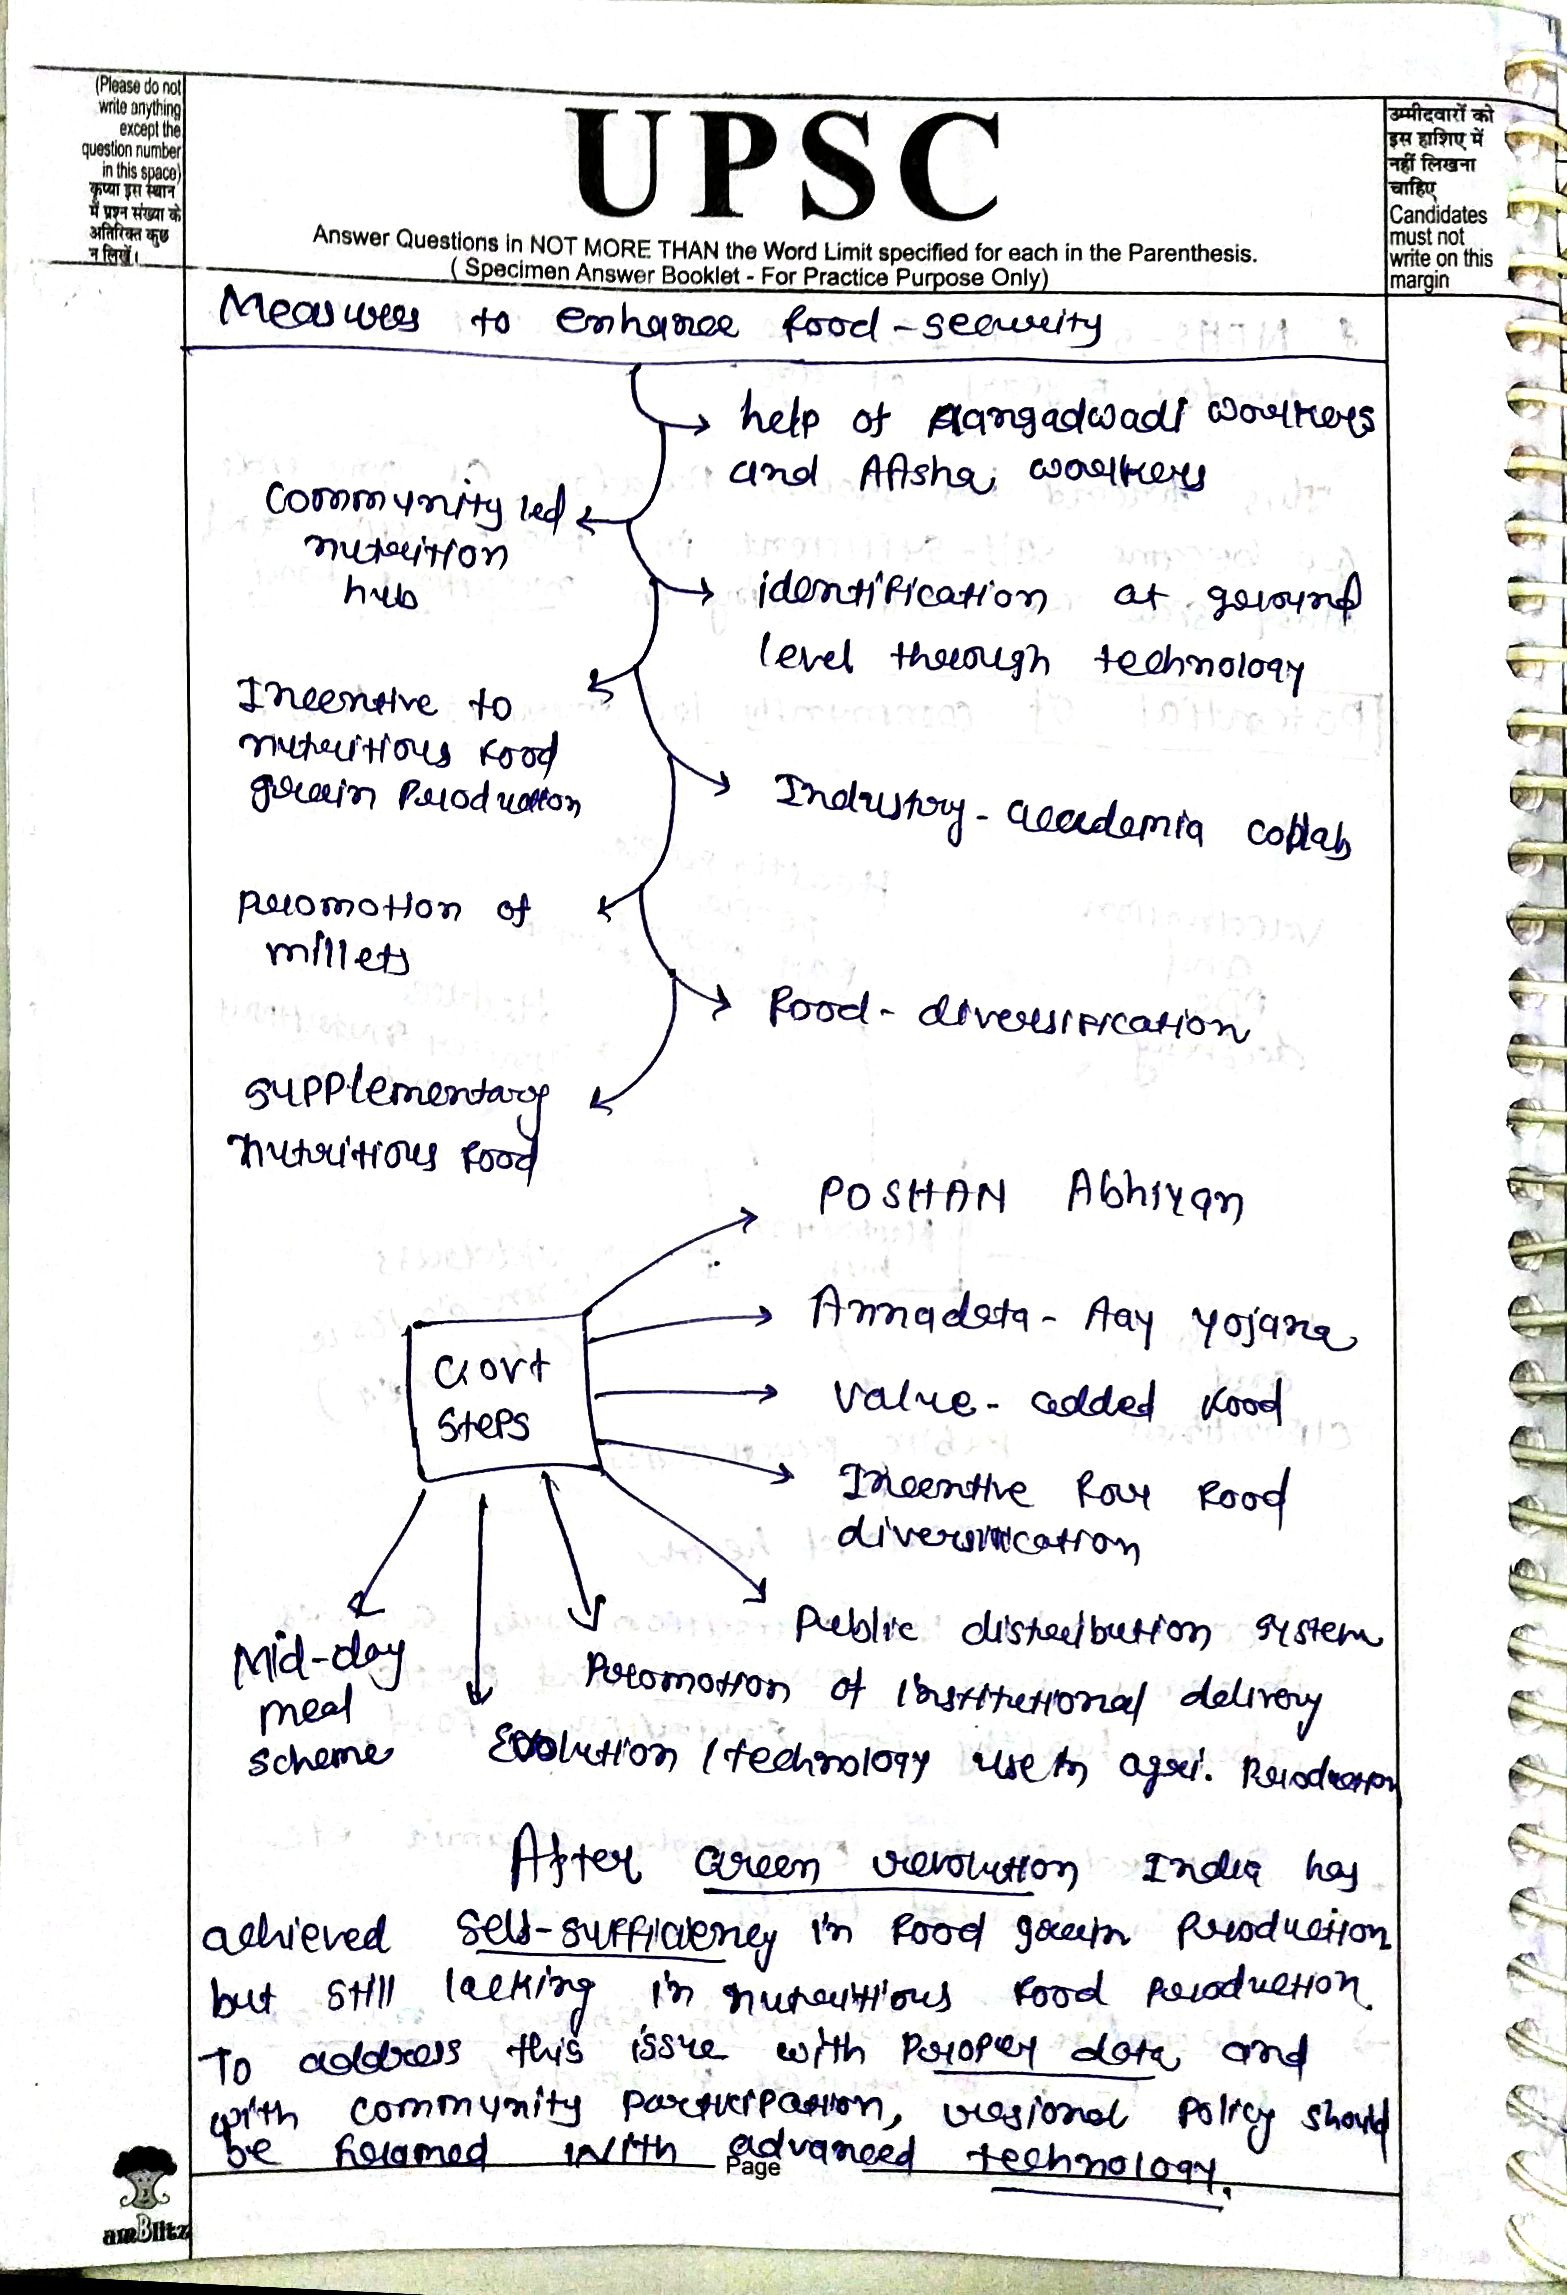 (Please do not
write anything
except the
question number
in this space)
कृप्या इस स्थान
में प्रश्न संख्या के
अतिरिक्त कुछ
न लिखें।
UPSC
Answer Questions in NOT MORE THAN the Word Limit specified for each in the Parenthesis.
( Specimen Answer Booklet - For Practice Purpose Only)
उम्मीदवारों को
इस हाशिए में
नहीं लिखना
चाहिए
Candidates
must not
write on this
margin
Measures to enhance food-security
help of Aangadwadi workers
and AAsha workers
Community led
nutrition
hub
identification at ground
level through technology
Incentive to
nutritious food
grain production
Industry-academia collab
promotion of
millets
food-diversification
supplementary
nutritious food
POSHAN Abhiyan
Annadata-Aay yojana
Govt
Steps
value-added food
Incentive for food
diversification
Public distribution system
Mid-day
meal
scheme
Promotion of institutional delivery
Evolution / technology use in agri. Production
After Green revolution India has
achieved self-sufficiency in food grain production
but still lacking in nutritious food production.
To address this issue with proper data and
with community participation, regional policy should
be framed with advanced technology.
Page
amBlitz